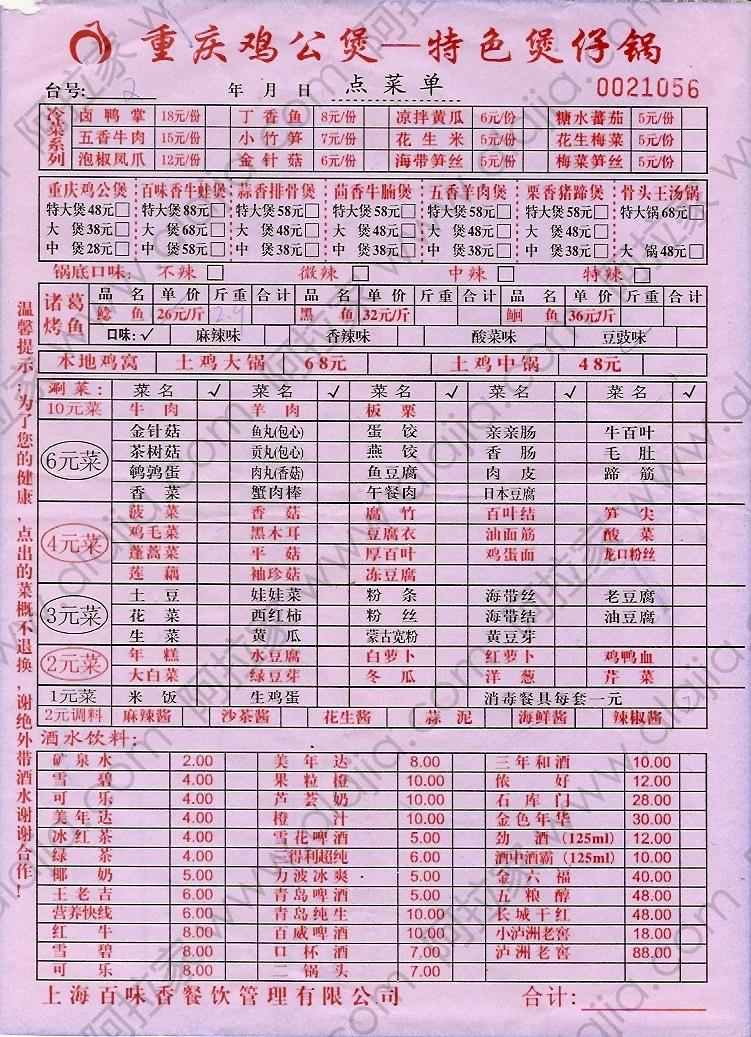 重庆鸡公煲—特色煲仔锅
台号: 2 年 月 日 点菜单 0021056
冷菜系列 卤鸭掌 18元/份 丁香鱼 8元/份 凉拌黄瓜 6元/份 糖水蕃茄 5元/份
五香牛肉 15元/份 小竹笋 7元/份 花生米 5元/份 花生梅菜 5元/份
泡椒凤爪 12元/份 金针菇 6元/份 海带笋丝 5元/份 梅菜笋丝 5元/份
重庆鸡公煲 百味香牛蛙煲 蒜香排骨煲 茴香牛腩煲 五香羊肉煲 栗香猪蹄煲 骨头王汤锅
特大煲48元 特大煲88元 特大煲58元 特大煲58元 特大煲58元 特大煲58元 特大锅68元
大煲38元 大煲68元 大煲48元 大煲48元 大煲48元 大煲48元
中煲28元 中煲58元 中煲38元 中煲38元 中煲38元 中煲38元 大锅48元
锅底口味: 不辣 微辣 中辣 特辣
诸葛烤鱼 品名 单价 斤重 合计 品名 单价 斤重 合计 品名 单价 斤重 合计
鲶鱼 26元/斤 2.9 黑鱼 32元/斤 鮰鱼 36元/斤
口味:✓ 麻辣味 香辣味 酸菜味 豆豉味
本地鸡窝 土鸡大锅 68元 土鸡中锅 48元
涮菜: 菜名 ✓ 菜名 ✓ 菜名 ✓ 菜名 ✓ 菜名 ✓
10元菜 牛肉 羊肉 板栗
6元菜 金针菇 鱼丸(包心) 蛋饺 亲亲肠 牛百叶
茶树菇 贡丸(包心) 燕饺 香肠 毛肚
鹌鹑蛋 肉丸(香菇) 鱼豆腐 肉皮 蹄筋
香菜 蟹肉棒 午餐肉 日本豆腐
4元菜 菠菜 香菇 腐竹 百叶结 笋尖
鸡毛菜 黑木耳 豆腐衣 油面筋 酸菜
蓬蒿菜 平菇 厚百叶 鸡蛋面 龙口粉丝
莲藕 袖珍菇 冻豆腐
3元菜 土豆 娃娃菜 粉条 海带丝 老豆腐
花菜 西红柿 粉丝 海带结 油豆腐
生菜 黄瓜 蒙古宽粉 黄豆芽
2元菜 年糕 水豆腐 白萝卜 红萝卜 鸡鸭血
大白菜 绿豆芽 冬瓜 洋葱 芹菜
1元菜 米饭 生鸡蛋 消毒餐具每套一元
2元调料 麻辣酱 沙茶酱 花生酱 蒜泥 海鲜酱 辣椒酱
酒水饮料:
矿泉水 2.00 美年达 8.00 三年和酒 10.00
雪碧 4.00 果粒橙 10.00 侬好 12.00
可乐 4.00 芦荟奶 10.00 石库门 28.00
美年达 4.00 橙汁 10.00 金色年华 30.00
冰红茶 4.00 雪花啤酒 5.00 劲酒(125ml) 12.00
绿茶 4.00 三得利超纯 6.00 酒中酒霸(125ml) 10.00
椰奶 5.00 力波冰爽 5.00 金六福 40.00
王老吉 6.00 青岛啤酒 5.00 五粮醇 48.00
营养快线 6.00 青岛纯生 10.00 长城干红 48.00
红牛 8.00 百威啤酒 10.00 小泸洲老窖 18.00
雪碧 8.00 口杯酒 7.00 泸洲老窖 88.00
可乐 8.00 二锅头 7.00
上海百味香餐饮管理有限公司 合计:
温馨提示:为了您的健康,点出的菜概不退换,谢绝外带酒水谢谢合作!
阿拉家 www.alajia.com